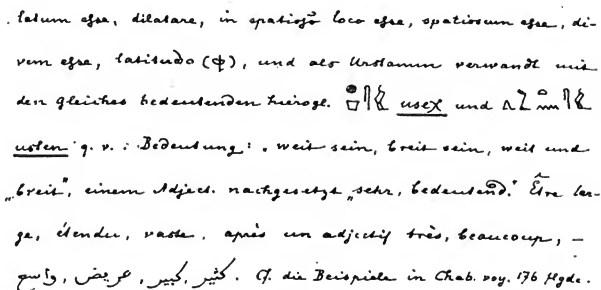 latum esse, dilatare, in spatioso loco esse, spatiosum esse, di-
vem esse, latitudo (ф), und als Urstamm verwandt mit
den gleiches bedeutenden hierogl. useχ und
usten q. v. : Bedeutung: „weit sein, breit sein, weit und
„breit", einem Adject. nachgesetzt „sehr, bedeutend." Être lar-
ge, étendu, vaste. après un adjectif très, beaucoup, —
كثير, كبير, عريض, واسع. Cf. die Beispiele in Chab. voy. 176 flgde.